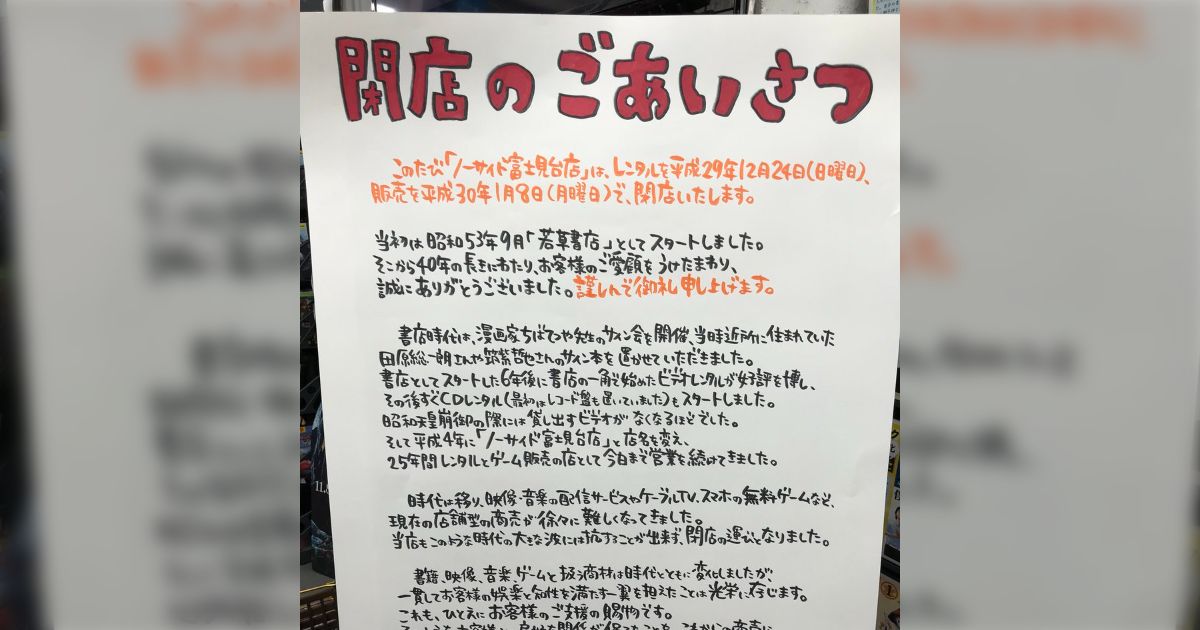 閉店のごあいさつ
このたび「ノーサイド富士見台店」は、レンタルを平成29年12月24日(日曜日)、
販売を平成30年1月8日(月曜日)で、閉店いたします。
当初は昭和53年9月「若草書店」としてスタートしました。
そこから40年の長きにわたり、お客様のご愛顧をうけたまわり、
誠にありがとうございました。謹しんで御礼申し上げます。
書店時代は、漫画家ちばてつや先生のサイン会を開催、当時近所に住まれていた
田原総一朗さんや筑紫哲也さんのサイン本を置かせていただきました。
書店としてスタートした6年後に書店の一角で始めたビデオレンタルが好評を博し、
その後すぐCDレンタル(最初はレコード盤も置いていました)をスタートしました。
昭和天皇崩御の際には貸し出すビデオがなくなるほどでした。
そして平成4年に「ノーサイド富士見台店」と店名を変え、
25年間レンタルとゲーム販売の店として今日まで営業を続けてきました。
時代は移り、映像・音楽の配信サービスやケーブルTV、スマホの無料ゲームなど、
現在の店舗型の商売が徐々に難しくなってきました。
当店もこのような時代の大きな波には抗することが出来ず、閉店の運びとなりました。
書籍、映像、音楽、ゲームと扱う商材は時代とともに変化しましたが、
一貫してお客様の娯楽と知性を満たす一翼を担えたことは光栄に存じます。
これも、ひとえにお客様のご支援の賜物です。